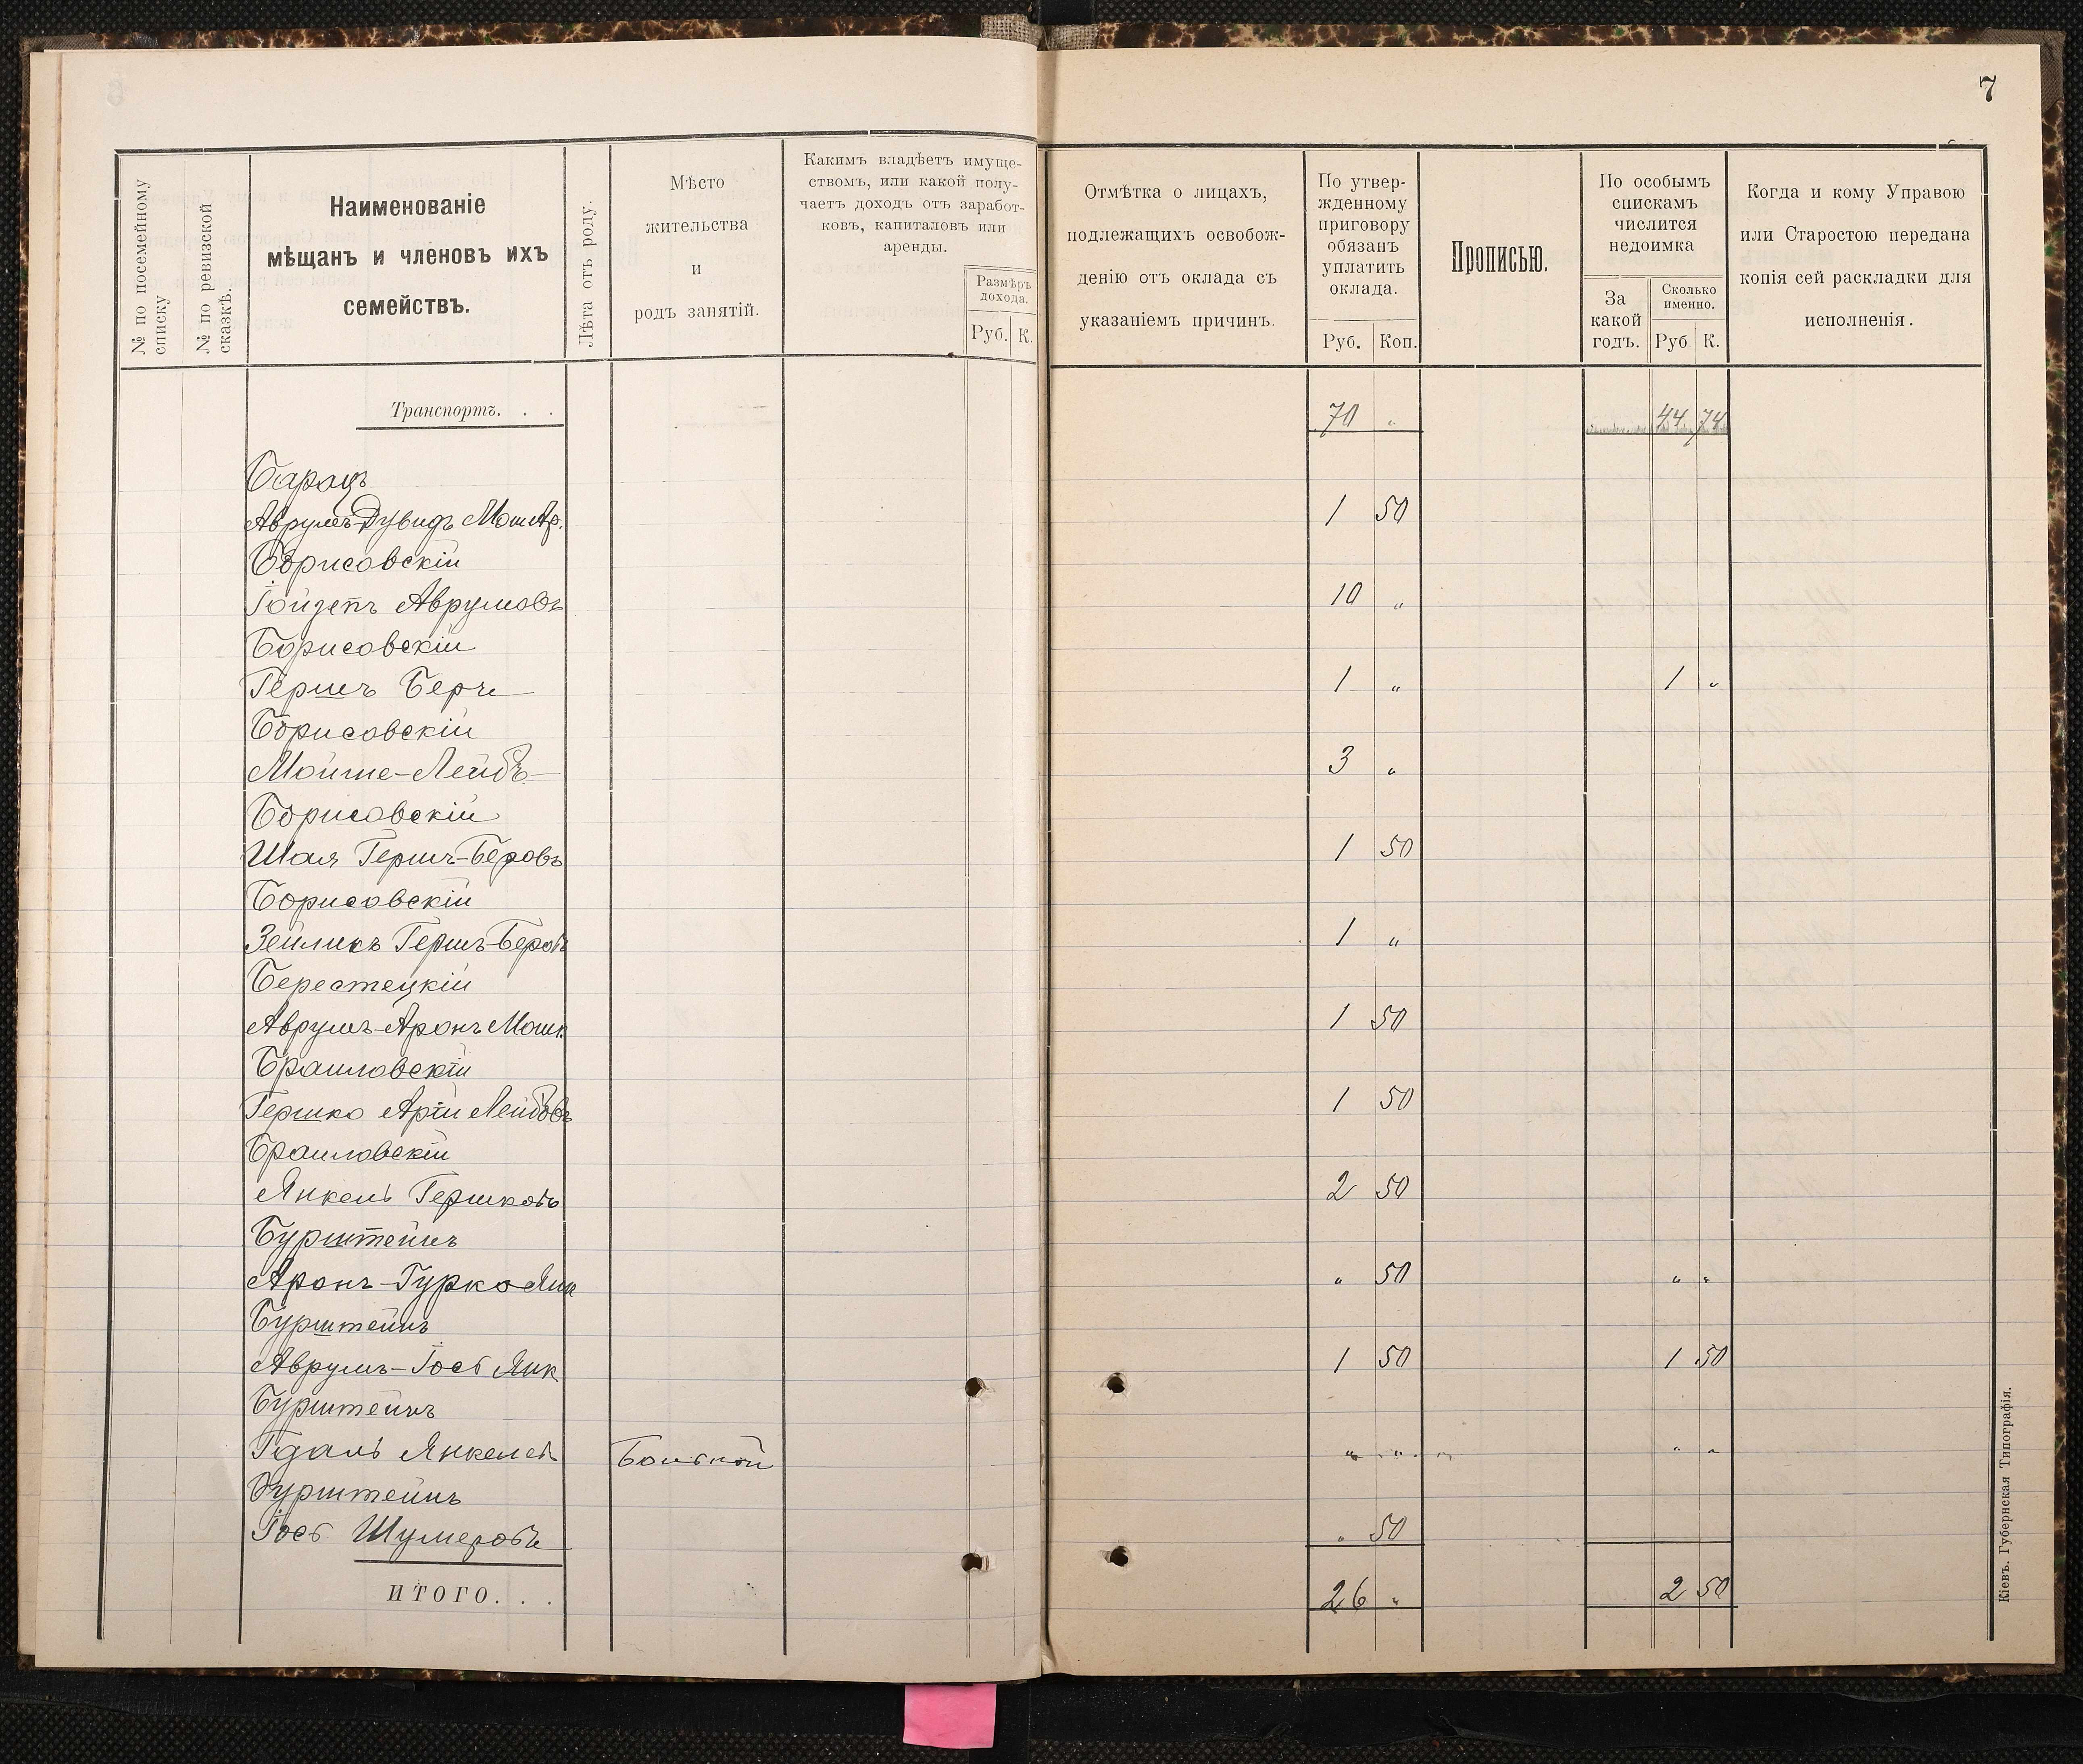 7
№ по посемейному списку
№ по ревизской сказкѣ.
Наименованіе
мѣщанъ и членовъ ихъ
семействъ.
Лѣта отъ роду.
Мѣсто
жительства
и
родъ занятій.
Какимъ владѣетъ имуще-
ствомъ, или какой полу-
чаетъ доходъ отъ заработ-
ковъ, капиталовъ или
аренды.
Размѣръ
дохода.
Руб. К.
Отмѣтка о лицахъ,
подлежащихъ освобож-
денію отъ оклада съ
указаніемъ причинъ.
По утвер-
жденному
приговору
обязанъ
уплатить
оклада.
Руб. Коп.
Прописью.
По особымъ
спискамъ
числится
недоимка
За
какой
годъ.
Сколько
именно.
Руб К.
Когда и кому Управою
или Старостою передана
копія сей раскладки для
исполненія.
Транспортъ. . . 70 „ 44 74
Барацъ
Аврумъ Дувидъ Мош Ар. 1 50
Борисовскій
Іойзепъ Аврумовъ 10 „
Борисовскій
Гершъ Берч 1 „ 1 „
Борисовскій
Мойше-Лейбъ 3 „
Борисовскій
Шая Гершъ-Беровъ 1 50
Борисовскій
Зейликъ Гершъ-Беровъ 1 „
Берестецкій
Аврумъ-Аронъ Мошк. 1 50
Браиловскій
Гершко Арій Лейбовъ 1 50
Браиловскій
Янкель Гершковъ 2 50
Бурштейнъ
Аронъ-Гурко Янк „ 50 „ „
Бурштейнъ
Аврумъ-Іосъ Янк 1 50 1 50
Бурштейнъ
Гдаль Янкелев „ „ „ „ „
Бурштейнъ
Іос Шумеровъ „ 50
ИТОГО. . . 26 „ 2 50
Кіевъ. Губернская Типографія.